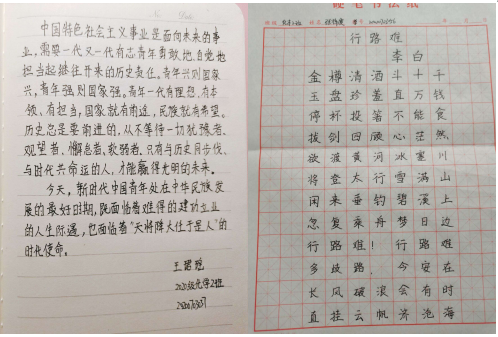 中国特色社会主义事业是面向未来的事
业,需要一代又一代有志青年勇敢地、自觉地
担当起继往开来的历史责任。青年兴则国家
兴,青年强则国家强。青年一代有理想、有本
领、有担当,国家就有前途,民族就有希望。
历史总是要前进的,从不等待一切犹豫者、
观望者、懈怠者、软弱者。只有与历史同步伐、
与时代共命运的人,才能赢得光明的未来。
今天,新时代中国青年处在中华民族发
展的最好时期,既面临着难得的建功立业
的人生际遇,也面临着“天将降大任于是人”的
时代使命。
2020级光学2班
硬笔书法纸
行路难
李白
金樽清酒斗十千
玉盘珍羞直万钱
停杯投箸不能食
拔剑四顾心茫然
欲渡黄河冰塞川
将登太行雪满山
闲来垂钓碧溪上
忽复乘舟梦日边
行路难!行路难
多歧路,今安在
长风破浪会有时
直挂云帆济沧海